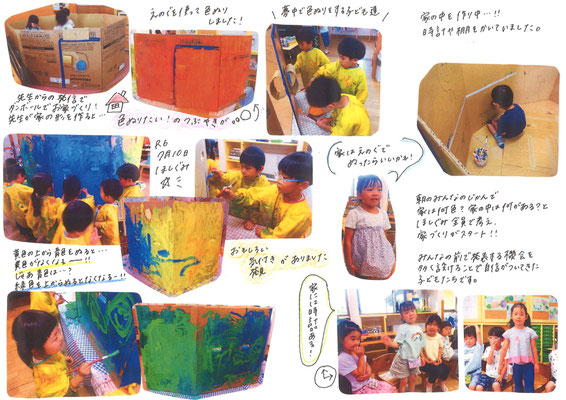 えのぐを使って色ぬり
しました!
夢中で色ぬりをする子ども達
家の中を作り中…!!
時計や棚をかいていました。
先生からの発信で
ダンボールでお家づくり!
先生が家の形を作ると…
色ぬりたい!のつぶやきが。。
R6
7月10日
ほしぐみ
家はえのぐで
ぬったらいいかも!
朝のみんなのじかんで
家は何色?家の中は何がある?と
ほしぐみ全員で考え、
家づくりがスタート!!
黄色の上から青色をぬると…
黄色がなくなるー!!
じゃあ青色は…?
緑色を上からぬるとなくなるー!!
おもしろい
発見
がありました
みんなの前で発表する機会を
多く設けることで自信がついてきた
子どもたちです。
家には時計がある!